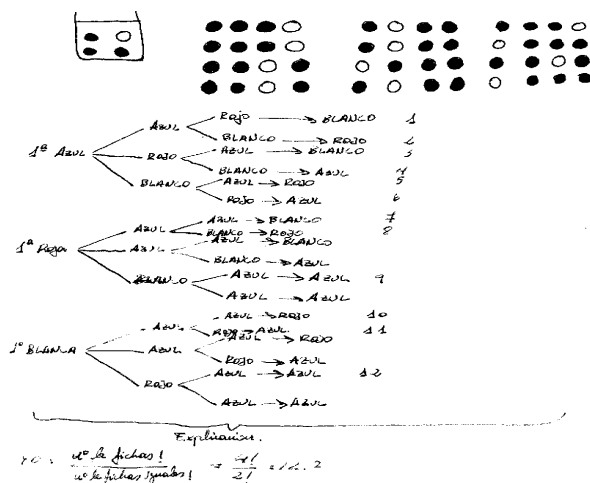 AZUL ROJO → BLANCO 1
BLANCO → ROJO 2
1ª AZUL ROJO AZUL → BLANCO 3
BLANCO → AZUL 4
BLANCO AZUL → ROJO 5
ROJO → AZUL 6
AZUL AZUL → BLANCO 7
BLANCO → ROJO 8
1ª Roja AZUL AZUL → BLANCO
BLANCO → AZUL
BLANCO AZUL → AZUL 9
AZUL → AZUL
AZUL AZUL → ROJO 10
ROJO → AZUL 11
1º BLANCA AZUL AZUL → ROJO
ROJO → AZUL
ROJO AZUL → AZUL 12
AZUL → AZUL
Explicacion.
nº de fichas! / nº de fichas iguales! = 4! / 2!